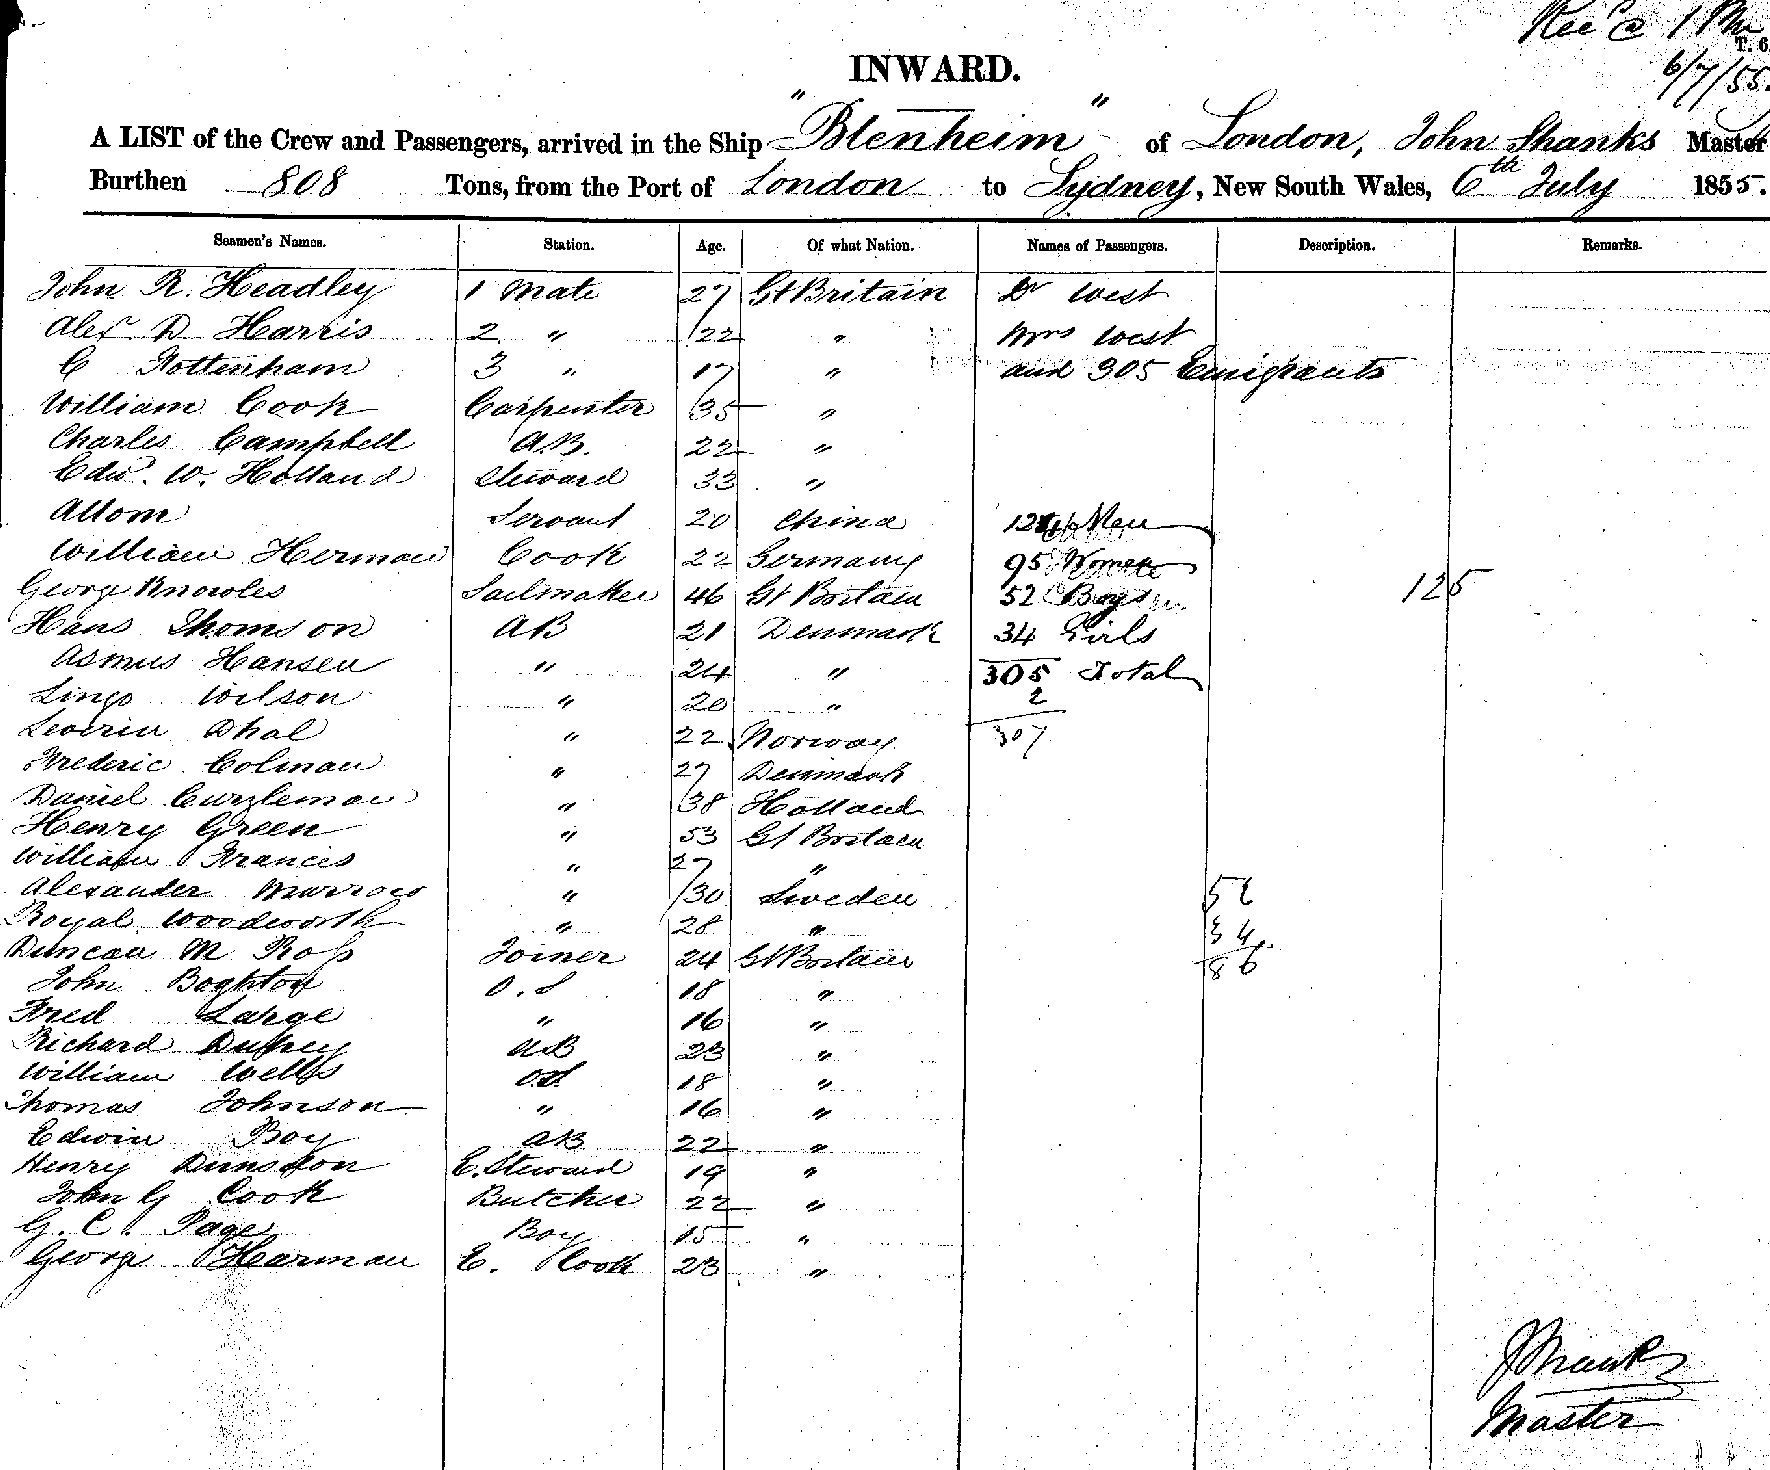 Rec'd @ 1 PM
T. 6
6/7/55.
INWARD.
A LIST of the Crew and Passengers, arrived in the Ship "Blenheim" of London, John Shanks Master
Burthen 808 Tons, from the Port of London to Sydney, New South Wales, 6th July 1855.
Seamen's Names. Station. Age. Of what Nation. Names of Passengers. Description. Remarks.
John R. Headley 1 Mate 27 Gt Britain Dr West
Alexr D Harris 2 " 22 " Mrs West
C Tottenham 3 " 17 " and 305 Emigrants
William Cook Carpenter 35 "
Charles Campbell A.B. 22 "
Edwd. W. Holland Steward 33 "
Attom Servant 20 China 124 Men
William Herman Cook 22 Germany 95 Women
George Knowles Sailmaker 46 Gt Britain 52 Boys 125
Hans Thomson AB 21 Denmark 34 Girls
Asmus Hansen " 24 " 305 Total
Lingo Wilson " 20 " 2
Severin Dhal " 22 Norway 307
Frederic Colman " 27 Denmark
Daniel " 38 Holland
Henry Green " 53 Gt Britain
William Francis " 27 "
Alexander Murrow " 30 Sweden 52
Royal Woodworth " 28 " 34
Duncan M Ross Joiner 24 Gt Britain 86
John Boghton O.S 18 "
Fred Large " 16 "
Richard AB 23 "
William Wells O.S. 18 "
Thomas Johnson " 16 "
Edwin Boy AB 22 "
Henry Dunsdon E. Steward 19 "
John G Cook Butcher 22 "
G. C. Page Boy 15 "
George Harman E. Cook 23 "
J Shanks
Master